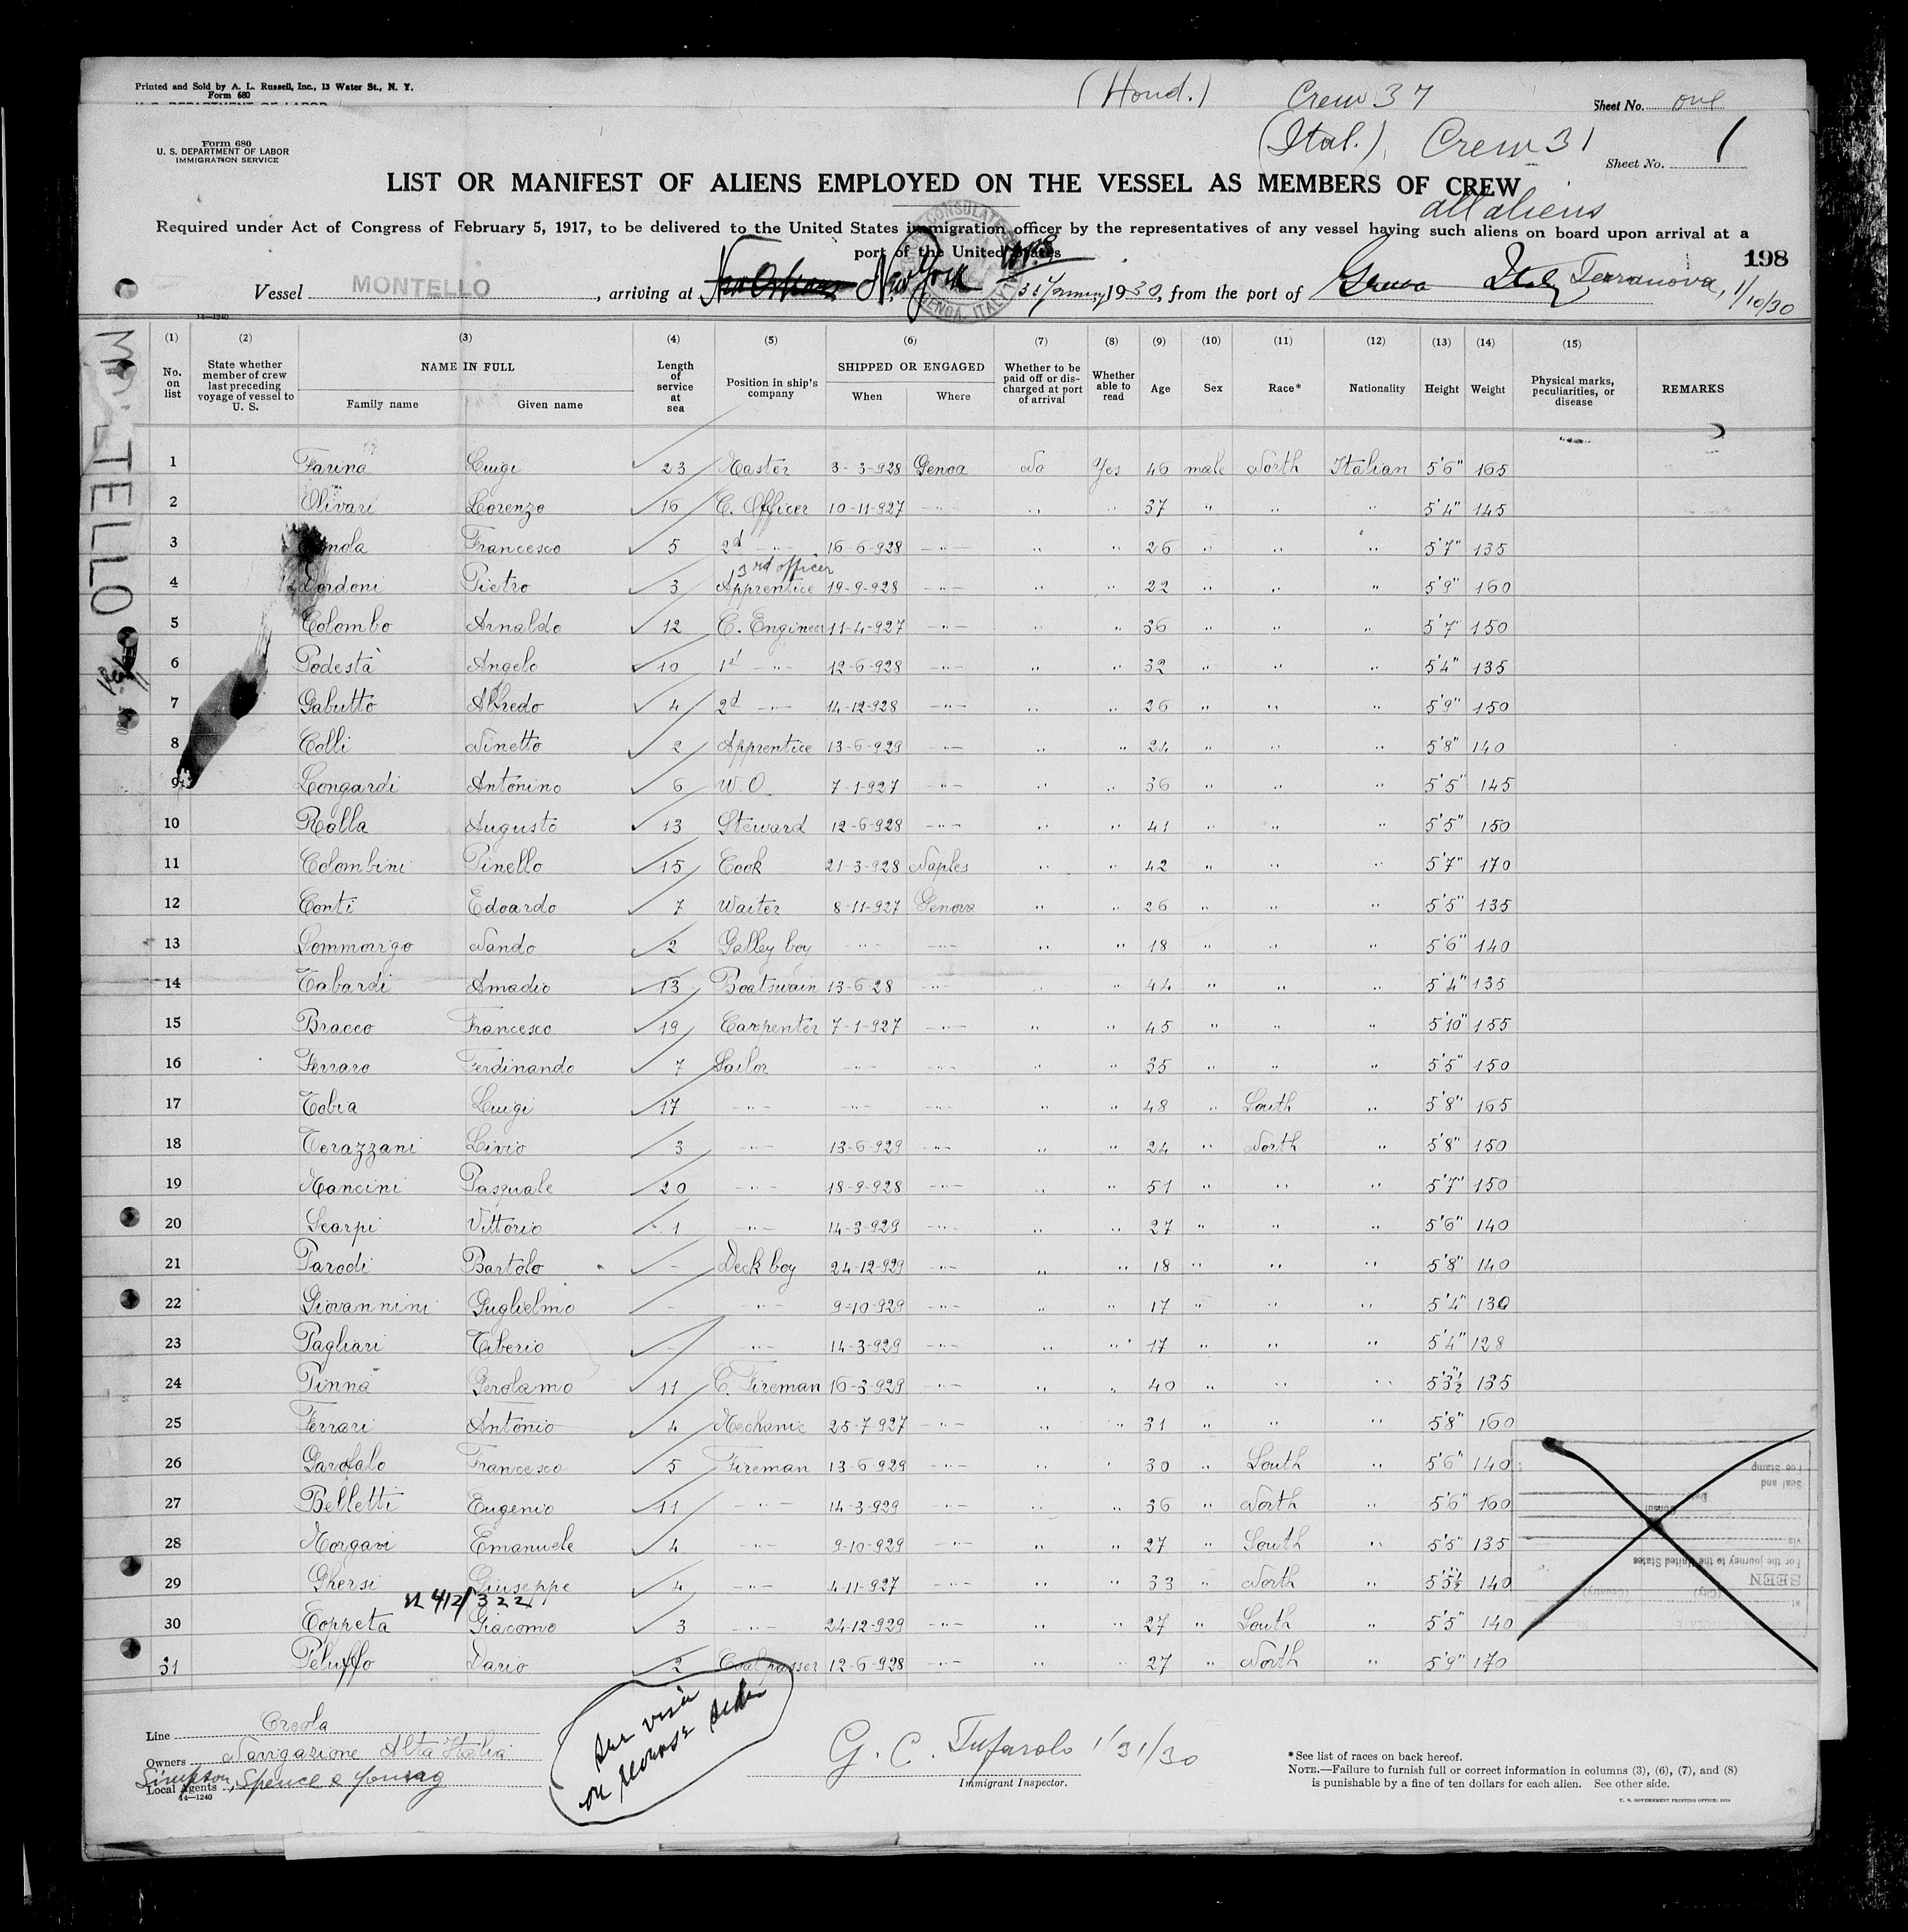 Printed and Sold by A. L. Russell, Inc., 13 Water St., N. Y.
Form 680
(Hond.) Crew 37 Sheet No. one
Form 680
U. S. DEPARTMENT OF LABOR
IMMIGRATION SERVICE
(Ital.) Crew 31 Sheet No. 1
LIST OR MANIFEST OF ALIENS EMPLOYED ON THE VESSEL AS MEMBERS OF CREW
all aliens
Required under Act of Congress of February 5, 1917, to be delivered to the United States immigration officer by the representatives of any vessel having such aliens on board upon arrival at a
port of the United States
198
Vessel MONTELLO, arriving at New York 31 January 1930, from the port of Genoa Italy Terranova, 1/10/30
14—1240
(1) (2) (3) (4) (5) (6) (7) (8) (9) (10) (11) (12) (13) (14) (15)
No. on list State whether member of crew last preceding voyage of vessel to U. S. NAME IN FULL Family name Given name Length of service at sea Position in ship's company SHIPPED OR ENGAGED When Where Whether to be paid off or discharged at port of arrival Whether able to read Age Sex Race* Nationality Height Weight Physical marks, peculiarities, or disease REMARKS
1 Farina Luigi 23 Master 3-3-928 Genoa No Yes 46 male North Italian 5'6" 165
2 Olivari Lorenzo 16 C. Officer 10-11-927 -"- " " 37 " " " 5'4" 145
3 Francesco 5 2d -"- 16-6-928 -"- " " 26 " " " 5'7" 135
3rd officer
4 Dordoni Pietro 3 Apprentice 19-9-928 -"- " " 22 " " " 5'9" 160
5 Colombo Arnaldo 12 C. Engineer 11-4-927 -"- " " 36 " " " 5'7" 150
6 Podestà Angelo 10 1st -"- 12-6-928 -"- " " 32 " " " 5'4" 135
7 Gabutto Alfredo 4 2d -"- 14-12-928 -"- " " 26 " " " 5'9" 150
8 Colli Ninetto 2 Apprentice 13-6-929 -"- " " 24 " " " 5'8" 140
9 Longardi Antonino 6 W. O. 7-1-927 -"- " " 36 " " " 5'5" 145
10 Rolla Augusto 13 Steward 12-6-928 -"- " " 41 " " " 5'5" 150
11 Colombini Pinello 15 Cook 21-3-928 Naples " " 42 " " " 5'7" 170
12 Conti Edoardo 7 Waiter 8-11-927 Genova " " 26 " " " 5'5" 135
13 Sommarigo Nando 2 Galley boy -"- -"- " " 18 " " " 5'6" 140
14 Tabardi Amadio 13 Boatswain 13-6-28 -"- " " 44 " " " 5'4" 135
15 Bracco Francesco 19 Carpenter 7-1-927 -"- " " 45 " " " 5'10" 155
16 Ferraro Ferdinando 7 Sailor -"- -"- " " 35 " " " 5'5" 150
17 Tobia Luigi 17 -"- -"- -"- " " 48 " South " 5'8" 165
18 Terazzani Livio 3 -"- 13-6-929 -"- " " 24 " North " 5'8" 150
19 Mancini Pasquale 20 -"- 18-9-928 -"- " " 51 " " " 5'7" 150
20 Scarpi Vittorio 1 -"- 14-3-929 -"- " " 27 " " " 5'6" 140
21 Parodi Bartolo - Deck boy 24-12-929 -"- " " 18 " " " 5'8" 140
22 Giovannini Guglielmo - -"- 9-10-929 -"- " " 17 " " " 5'4" 130
23 Pagliari Tiberio - -"- 14-3-929 -"- " " 17 " " " 5'4" 128
24 Pinna Gerolamo 11 C. Fireman 16-3-929 -"- " " 40 " " " 5'3½" 135
25 Ferrari Antonio 4 Mechanic 25-7-927 -"- " " 31 " " " 5'8" 160
26 Garofalo Francesco 5 Fireman 13-6-929 -"- " " 30 " South " 5'6" 140
27 Belletti Eugenio 11 -"- 14-3-929 -"- " " 36 " North " 5'6" 160
28 Morgavi Emanuele 4 -"- 9-10-929 -"- " " 27 " South " 5'5" 135
29 Ghersi Giuseppe 4 -"- 4-11-927 -"- " " 33 " North " 5'5½" 140
412/322
30 Coppeta Giacomo 3 -"- 24-12-929 -"- " " 27 " South " 5'5" 140
31 Peluffo Dario 2 Coal passer 12-6-928 -"- " " 27 " North " 5'9" 170
SEEN
For the journey to the United States
Seal and
Fee Stamp
Line Creola
Owners Navigazione Alta Italia
Local Agents Simpson, Spence & Young
14—1240
See visa
on reverse side
G. C. Tufarolo 1/31/30
Immigrant Inspector.
*See list of races on back hereof.
NOTE.—Failure to furnish full or correct information in columns (3), (6), (7), and (8)
is punishable by a fine of ten dollars for each alien. See other side.
MONTELLO